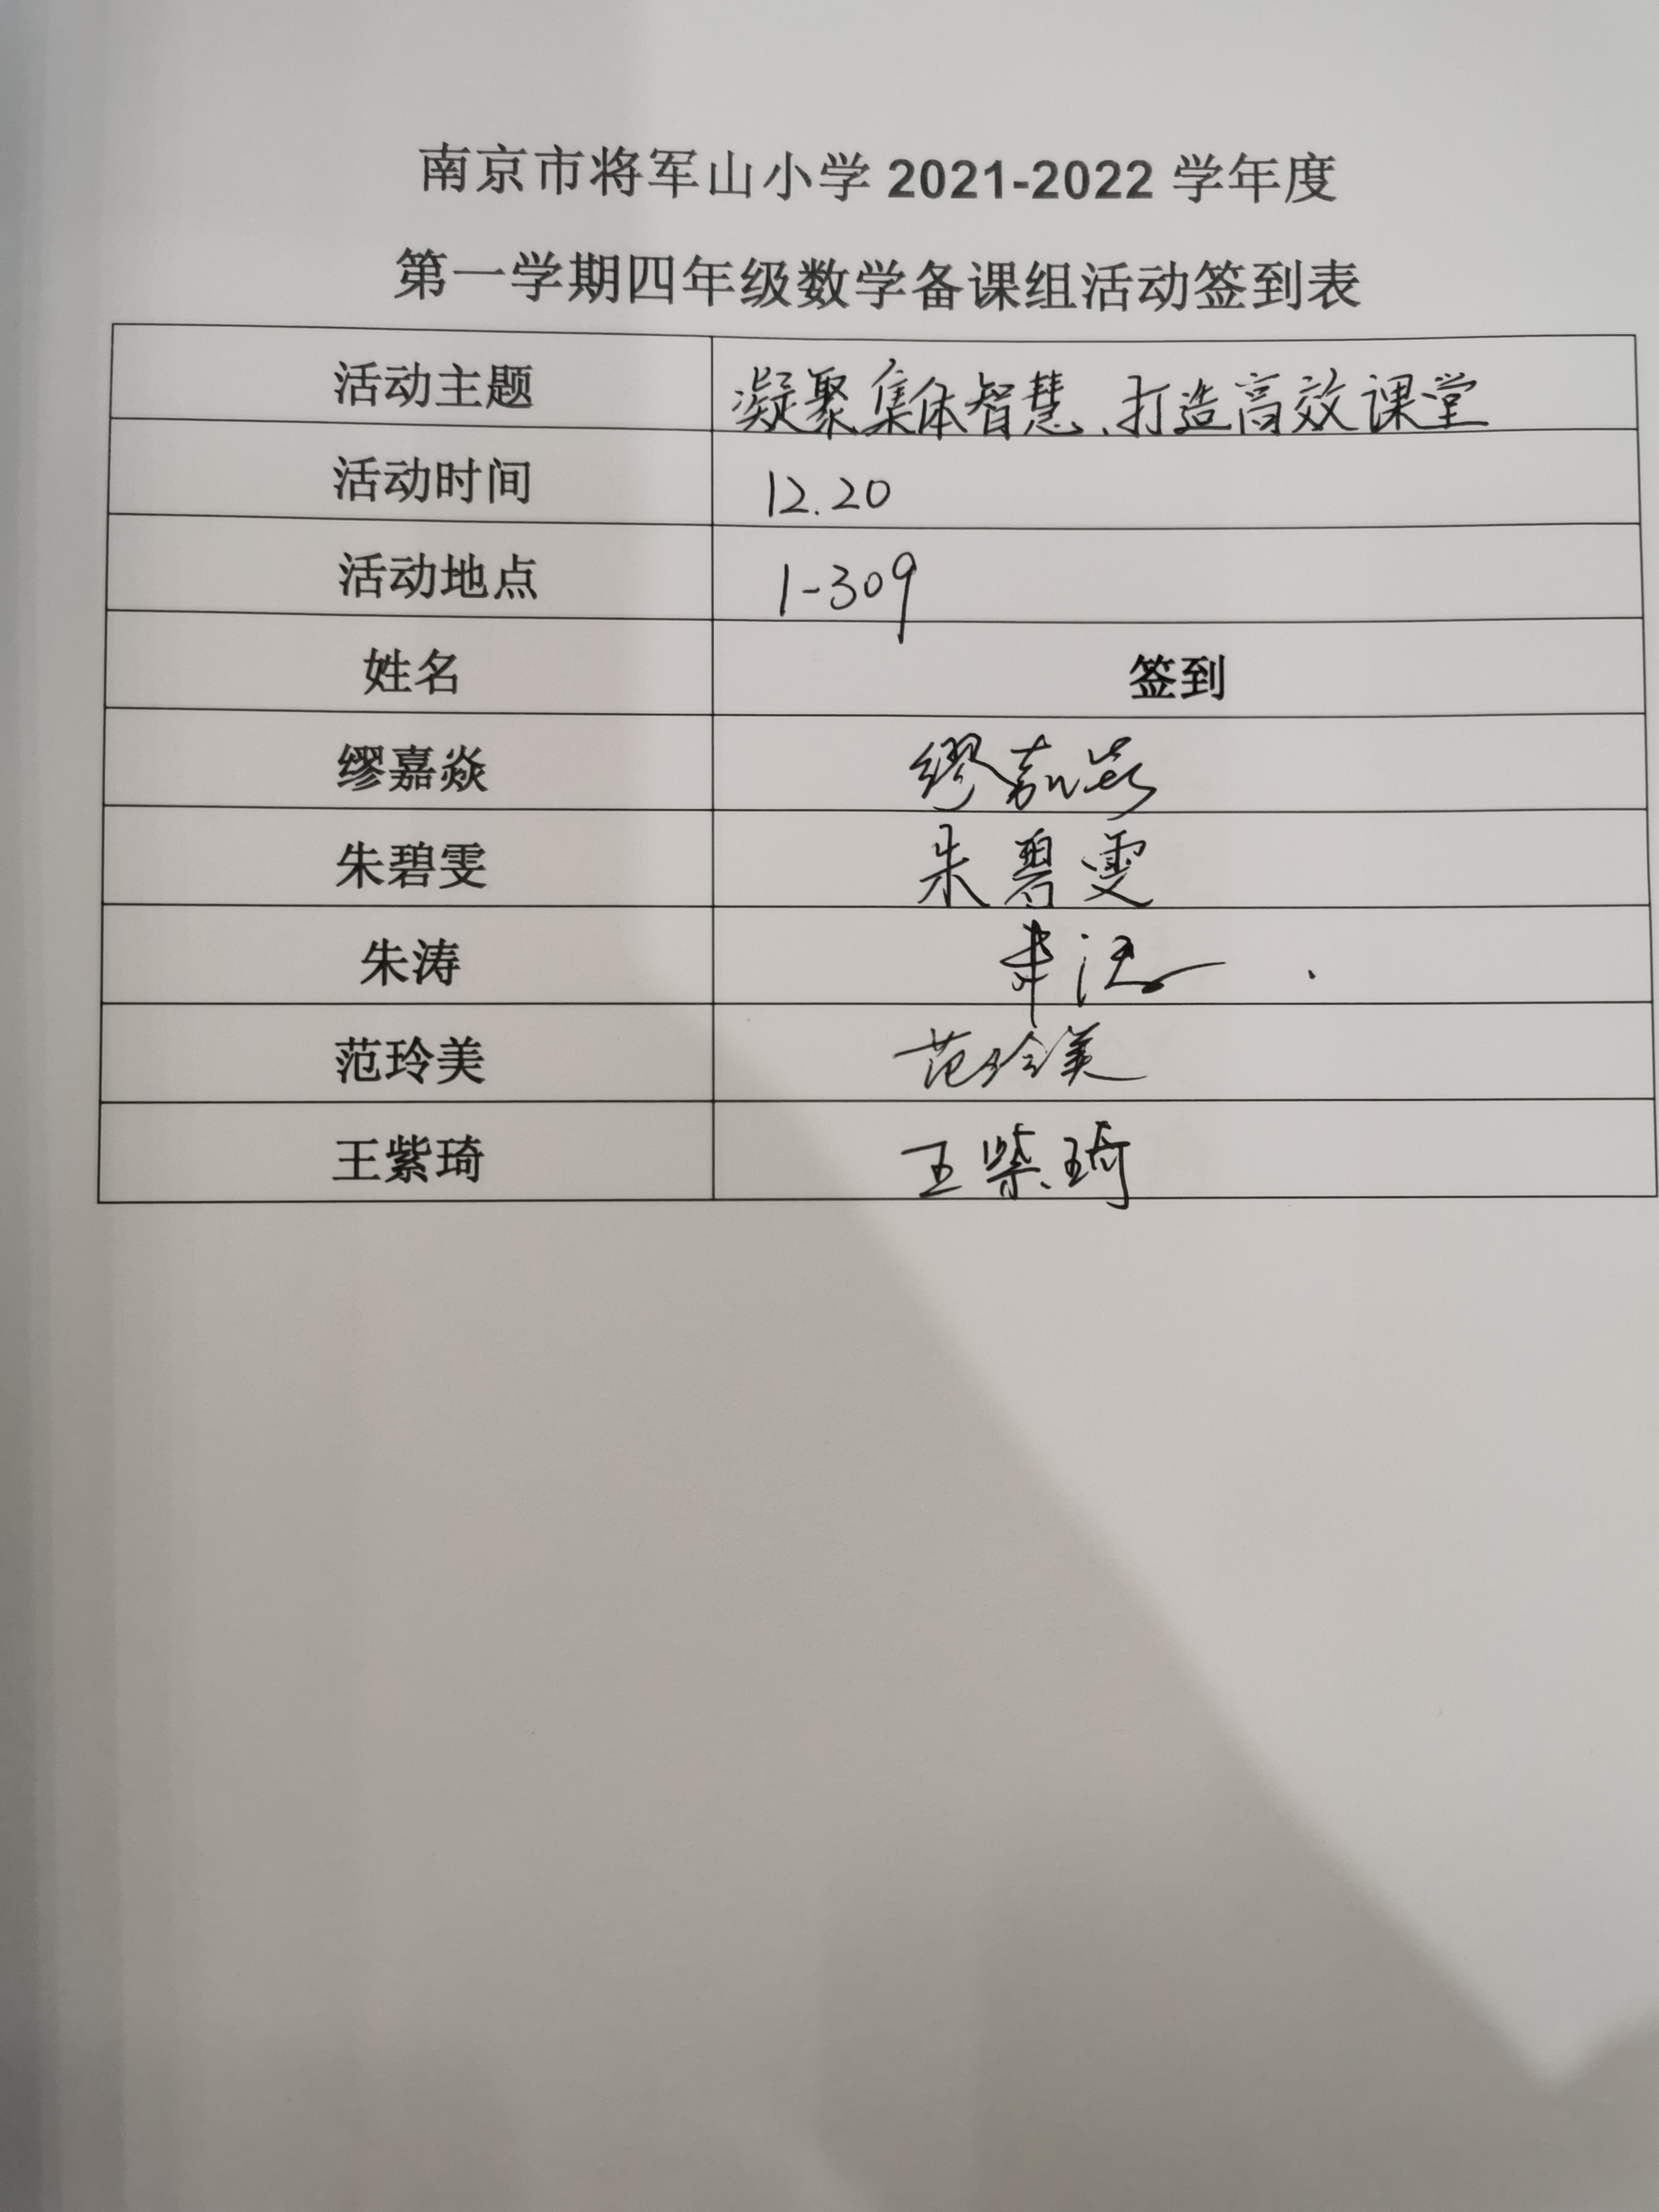 南京市将军山小学 2021-2022 学年度
第一学期四年级数学备课组活动签到表
活动主题 凝聚集体智慧、打造高效课堂
活动时间 12.20
活动地点 1-309
姓名 签到
缪嘉焱 缪嘉焱
朱碧雯 朱碧雯
朱涛 朱涛
范玲美 范玲美
王紫琦 王紫琦